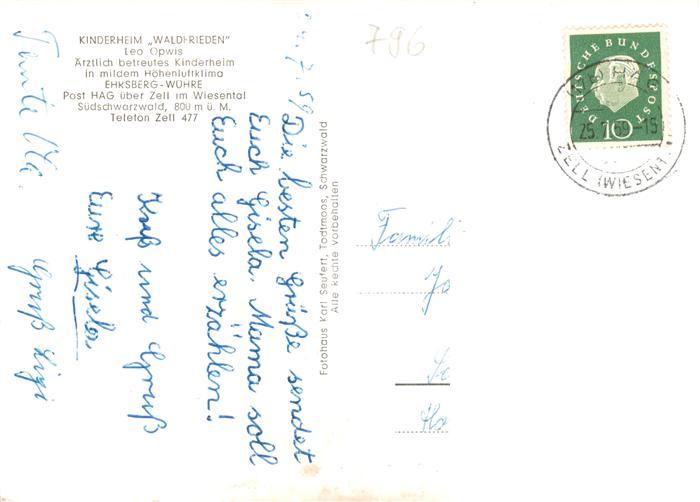 KINDERHEIM „WALDFRIEDEN"
Leo Opwis
Ärztlich betreutes Kinderheim
in mildem Höhenluftklima
EHRSBERG - WÜHRE
Post HAG über Zell im Wiesental
Südschwarzwald, 800 m ü. M.
Telefon Zell 477
796
7. 59
Die besten Grüße sendet
Euch Gisela. Mama soll
Euch alles erzählen!
Kuß und Gruß
Eure Gisela
Gruß Sigi
Tante
Fotohaus Karl Seufert, Todtmoos, Schwarzwald
Alle Rechte vorbehalten
DEUTSCHE BUNDESPOST
10
25. 59-15
ZELL (WIESENT
Famili